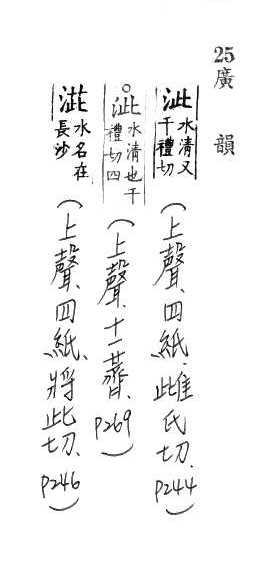 25 廣韻
泚 水清又
千禮切
(上聲、四紙、雌氏切、P244)
○泚 水清也千
禮切四
(上聲、十一薺、P269)
水名在
長沙
(上聲、四紙、將此切、P246)